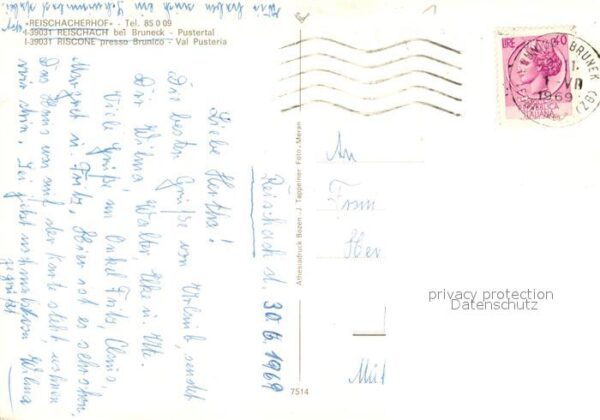 «REISCHACHERHOF» - Tel. 85 0 09
I-39031 REISCHACH bei Bruneck - Pustertal
I-39031 RISCONE presso Brunico - Val Pusteria
Reischach d. 30.6.1969
Liebe Hertha!
Die besten Grüße vom Urlaub, sendet
Dir Wilma, Walter, Elke u. Ute.
Viele Grüße an Onkel Fritz,
Margret u. Fritz. Hier ist es sehr schön.
Das Haus was auf der Karte steht, wohnen
wir drin. Sei jetzt nochmals von Wilma
gegrüßt
Wir haben auch ein Schwimmbad dabei
Athesiadruck Bozen / J. Tappeiner Foto-Meran
7514
LIRE 40
REPUBBLICA
ITALIANA
BRUNICO BRUNEK (BZ)
1969
An
Frau
Her
privacy protection
Datenschutz